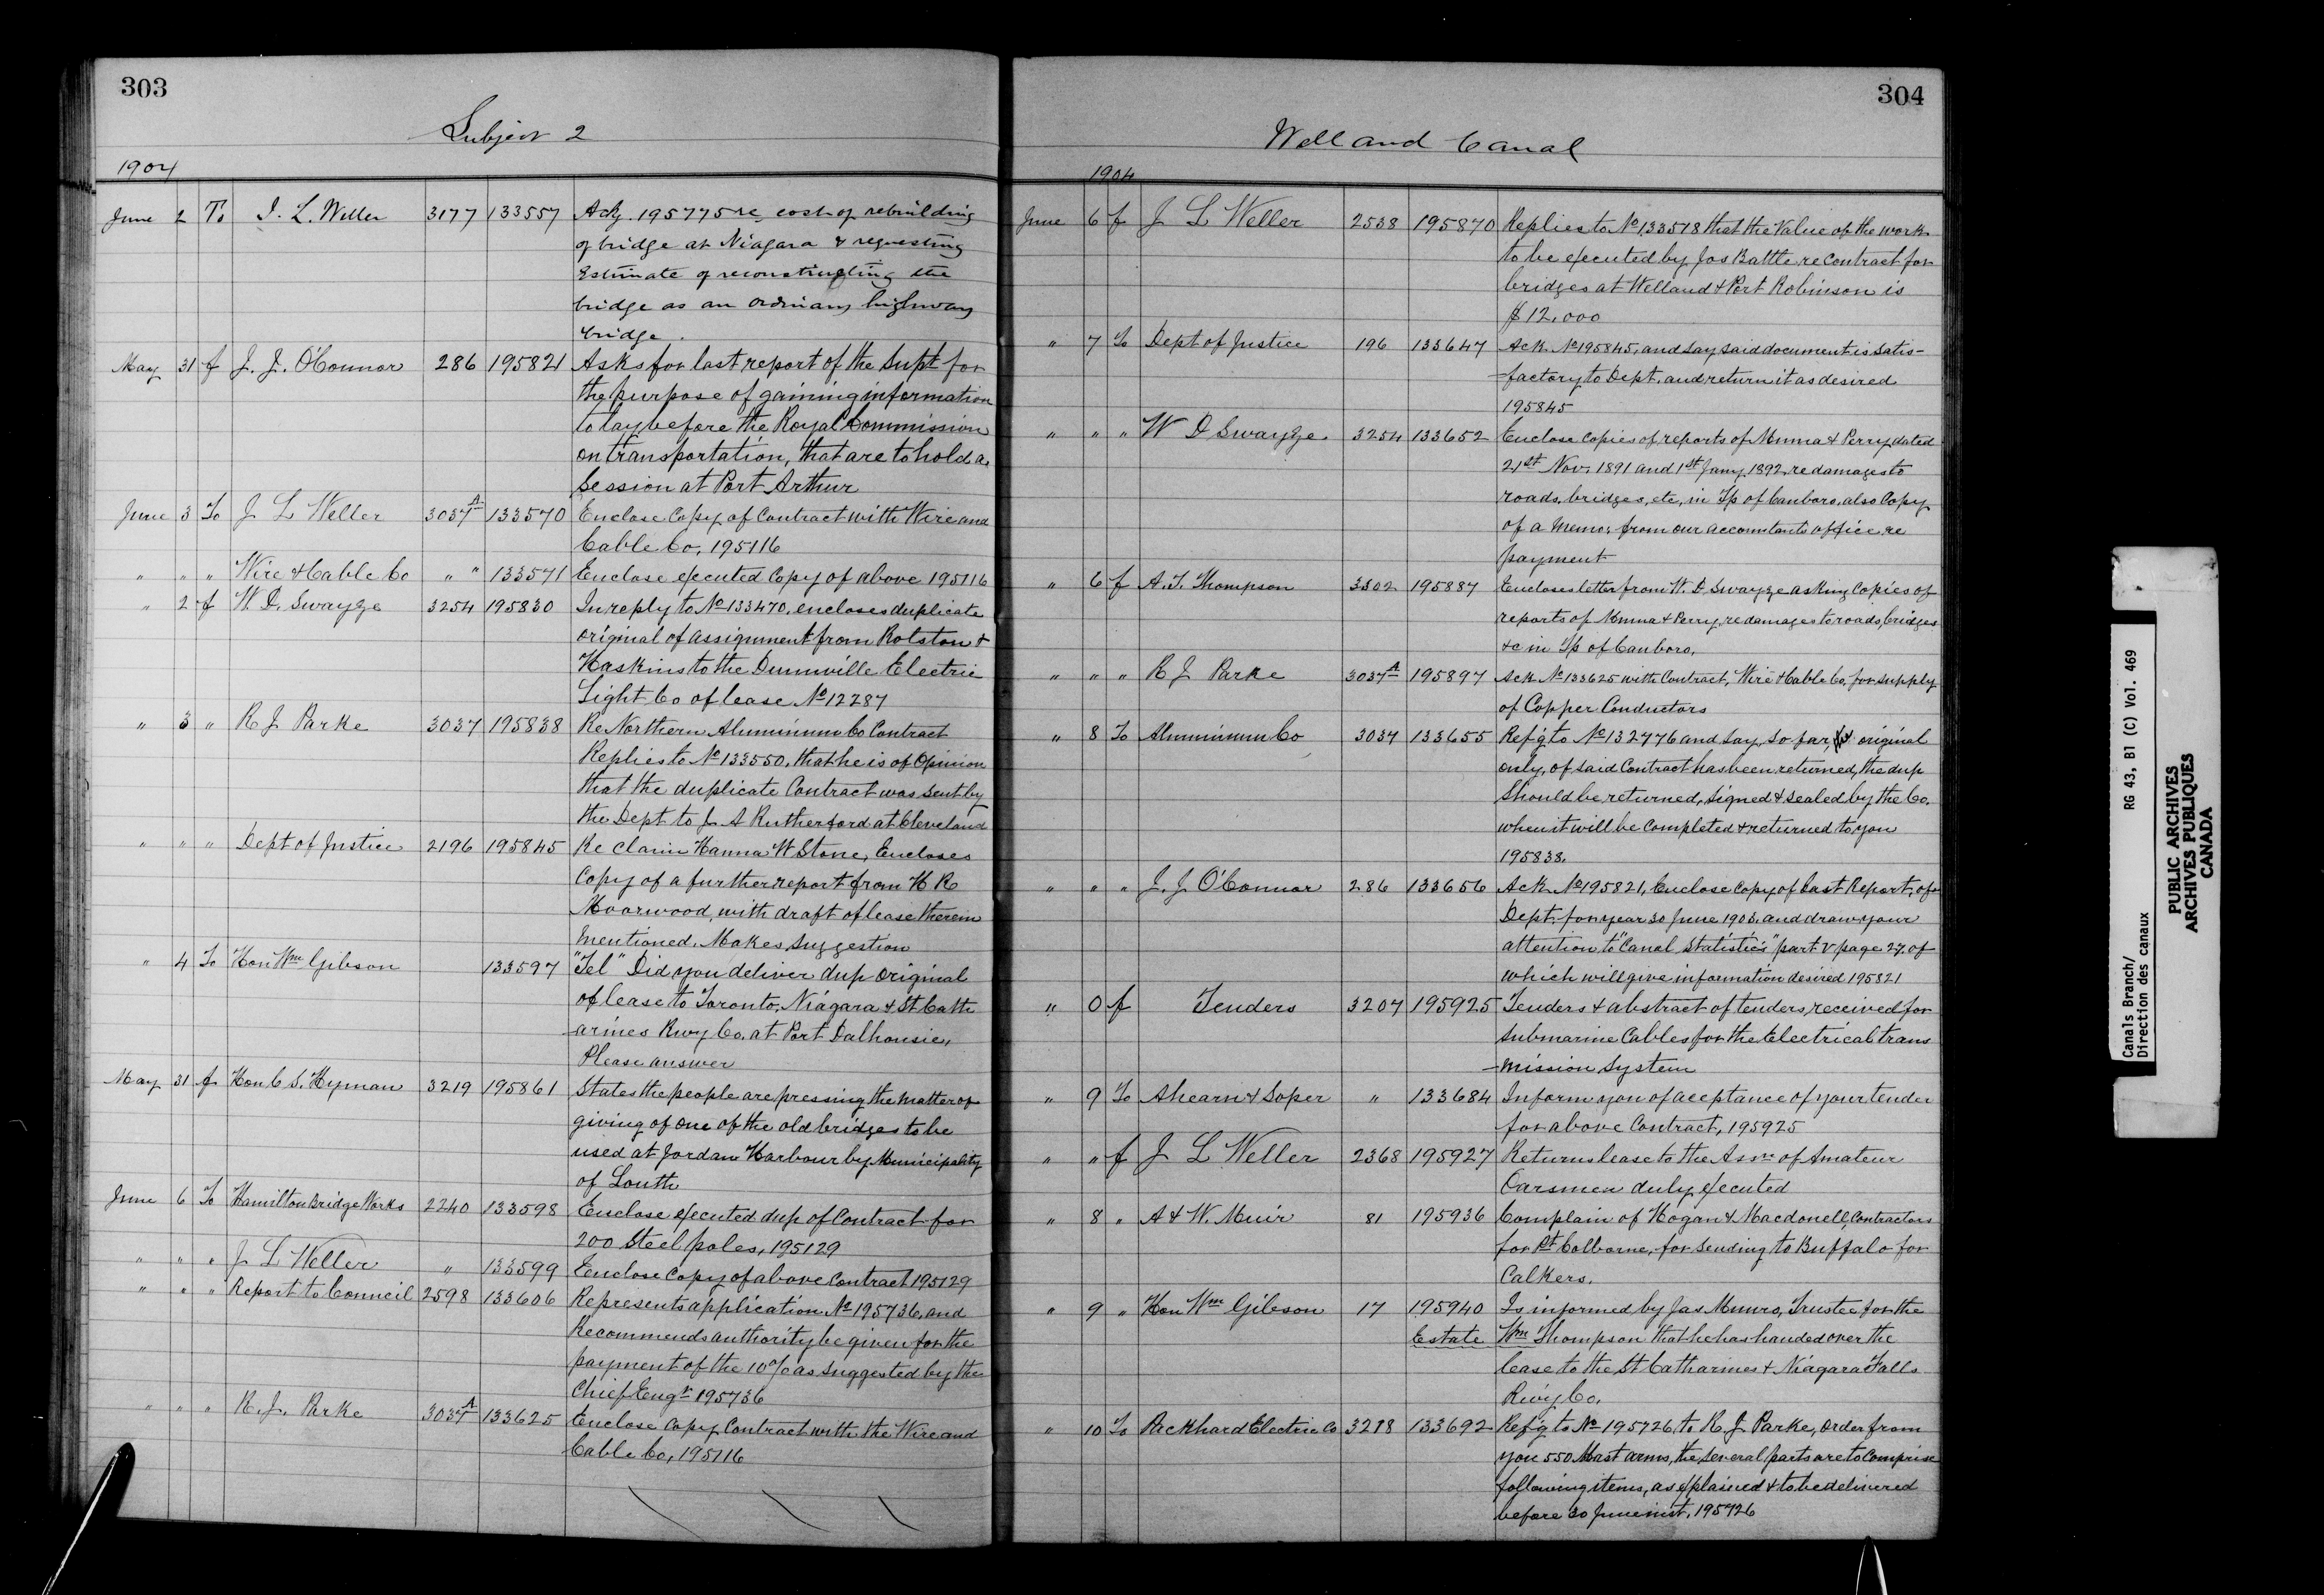 303
Subject 2
1904
June 2 To J. L. Weller 3177 133557 Ack. 195775 re cost of rebuilding
of bridge at Niagara & requesting
Estimate of reconstructing the
bridge as an ordinary highway
bridge.
May 31 f J. J. O'Connor 286 195821 Asks for last report of the Supt for
the purpose of gaining information
to lay before the Royal Commission
on transportation, that are to hold a
Session at Port Arthur
June 3 To J L Weller 3037A 133570 Enclose Copy of Contract with Wire and
Cable Co, 195116
" " " Wire & Cable Co " " 133571 Enclose executed Copy of above 195116
" 2 f W. D. Swayze 3254 195830 In reply to No 133470, encloses duplicate
original of assignment from Rolston &
Haskins to the Dunnville Electric
Light Co of lease No 12287
" 3 " R J Parke 3037 195838 Re Northern Aluminium Co Contract
Replies to No 133550, that he is of Opinion
that the duplicate Contract was sent by
the Dept to J. A Rutherford at Cleveland
" " " Dept of Justice 2196 195845 Re Claim Hanna W Stone, Encloses
Copy of a further report from H R
Moorwood, with draft of lease therein
mentioned. Makes Suggestion
" 4 To Hon Wm Gibson 133597 "Tel" Did you deliver dup original
of lease to Toronto, Niagara & St Cath
-arines Rwy Co. at Port Dalhousie,
Please answer
May 31 f Hon C S. Hyman 3219 195861 States the people are pressing the matter of
giving of one of the old bridges to be
used at Jordan Harbour by Municipality
of Louth
June 6 To Hamilton Bridge Works 2240 133598 Enclose executed dup of Contract for
200 Steel poles, 195129
" " " J L Weller " 133599 Enclose Copy of above Contract 195129
" " " Report to Council 2598 133606 Represents application No 195736, and
Recommends authority be given for the
payment of the 10% as suggested by the
Chief Engr 195736
" " " R. J. Parke 3037A 133625 Enclose Copy Contract with the Wire and
Cable Co, 195116
304
Welland Canal
1904
June 6 f J L Weller 2538 195870 Replies to No 133518 that the Value of the work
to be executed by Jas Battle re Contract for
bridges at Welland & Port Robinson is
$12,000
" 7 To Dept of Justice 196 133647 Ack No 195845, and say said document is satis-
-factory to Dept. and return it as desired
195845
" " " W D Swayze 3254 133652 Enclose Copies of reports of Munro & Perry dated
21st Nov. 1891 and 1st Jany 1892, re damages to
roads, bridges, etc, in Tp of Canboro, also Copy
of a Memo, from our accountants office re
payment
" 6 f A. T. Thompson 3302 195887 Encloses letter from W. D. Swayze asking Copies of
reports of Munro & Perry, re damages to roads, bridges
&c in Tp of Canboro,
" " " R J Parke 3037A 195897 Ack No 133625 with Contract, Wire & Cable Co, for supply
of Copper Conductors
" 8 To Aluminium Co 3037 133655 Refg to No 132776 and say, so far, original
only, of said Contract has been returned, the dup
should be returned, signed & sealed by the Co.
when it will be completed & returned to you
195838.
" " " J. J O'Connor 286 133656 Ack No 195821, Enclose Copy of last Report, of
Dept. for year 30 June 1903, and draw your
attention to "Canal Statistics" part V page 27, of
which will give information desired 195821
" 0 f Tenders 3207 195925 Tenders & abstract of tenders received for
Submarine Cables for the Electrical trans
-mission System
" 9 To Ahearn & Soper " 133684 Inform you of acceptance of your tender
for above Contract, 195925
" " f J L Weller 2368 195927 Returns lease to the Assn of Amateur
Oarsmen duly executed
" 8 " A & W. Muir 81 195936 Complain of Hogan & Macdonell, Contractors
for Pt Colborne, for sending to Buffalo for
Calkers.
" 9 " Hon Wm Gibson 17 195940 Is informed by Jas Munro, Trustee for the
Estate Wm Thompson that he has handed over the
lease to the St Catharines & Niagara Falls
Rwy Co.
" 10 To Packhard Electric Co 3218 133692 Refg to No 195726, to R. J. Parke, order from
you 550 Mast arms, the several parts are to Comprise
following items, as explained & to be delivered
before 30 June inst, 195726
Canals Branch/
Direction des canaux
RG 43, B1 (C) Vol. 469
PUBLIC ARCHIVES
ARCHIVES PUBLIQUES
CANADA